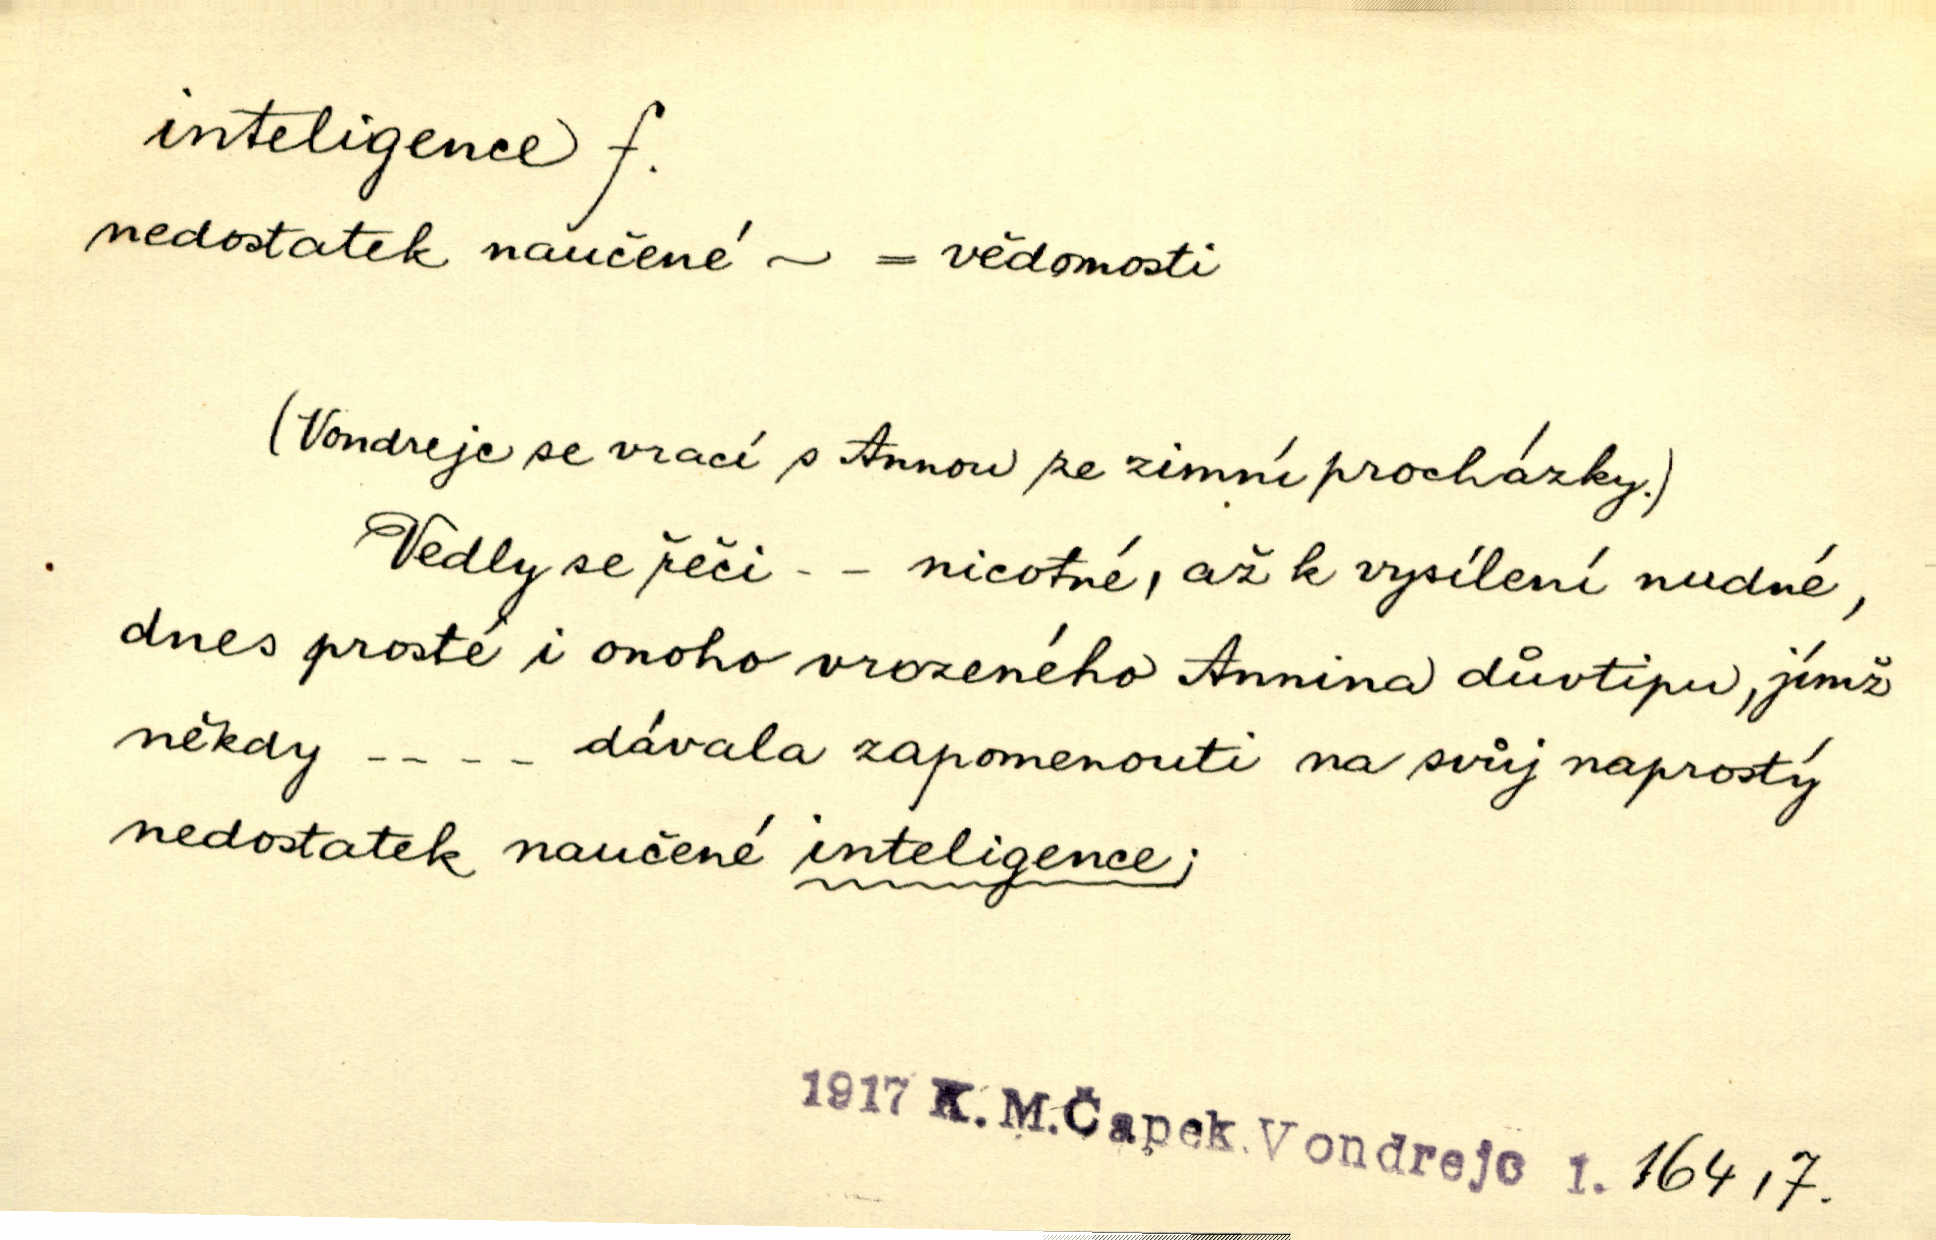 inteligence f.
nedostatek naučené ~ = vědomosti
(Vondrejc se vrací s Annou ze zimní procházky.)
Vedly se řeči - - nicotné, až k vysílení nudné,
dnes prosté i onoho vrozeného Annina důvtipu, jímž
někdy - - - - dávala zapomenouti na svůj naprostý
nedostatek naučené inteligence;
1917 K. M. Čapek. Vondrejc 1. 164,7.